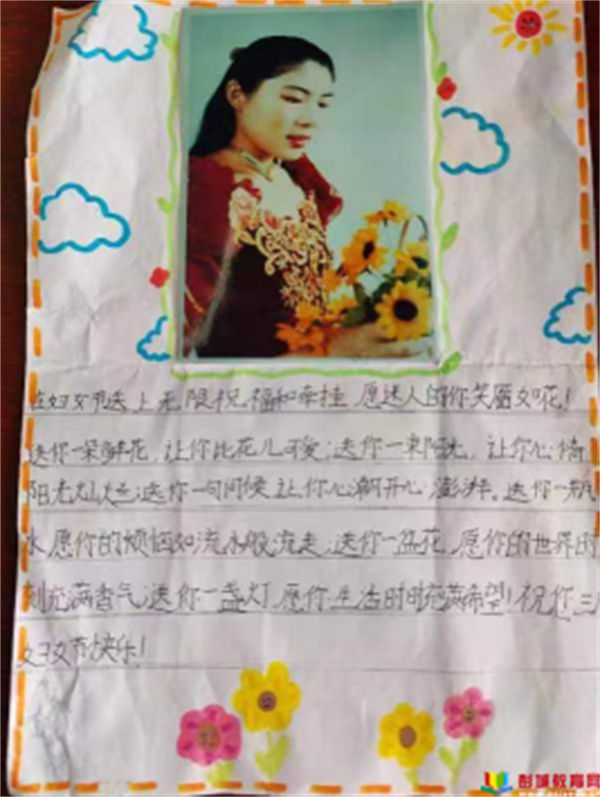 在妇女节送上无限祝福和牵挂 愿迷人的你笑丽如花!
送你一朵鲜花,让你比花儿可爱;送你一束阳光,让你心情
阳光灿烂;送你一句问候 让你心潮开心澎湃。送你一瓶
水 愿你的烦恼如流水般流走;送你一盆花,愿你的世界时
刻充满香气;送你一盏灯,愿你生活时时充满希望!祝你三
妇女节快乐!
彭城教育网